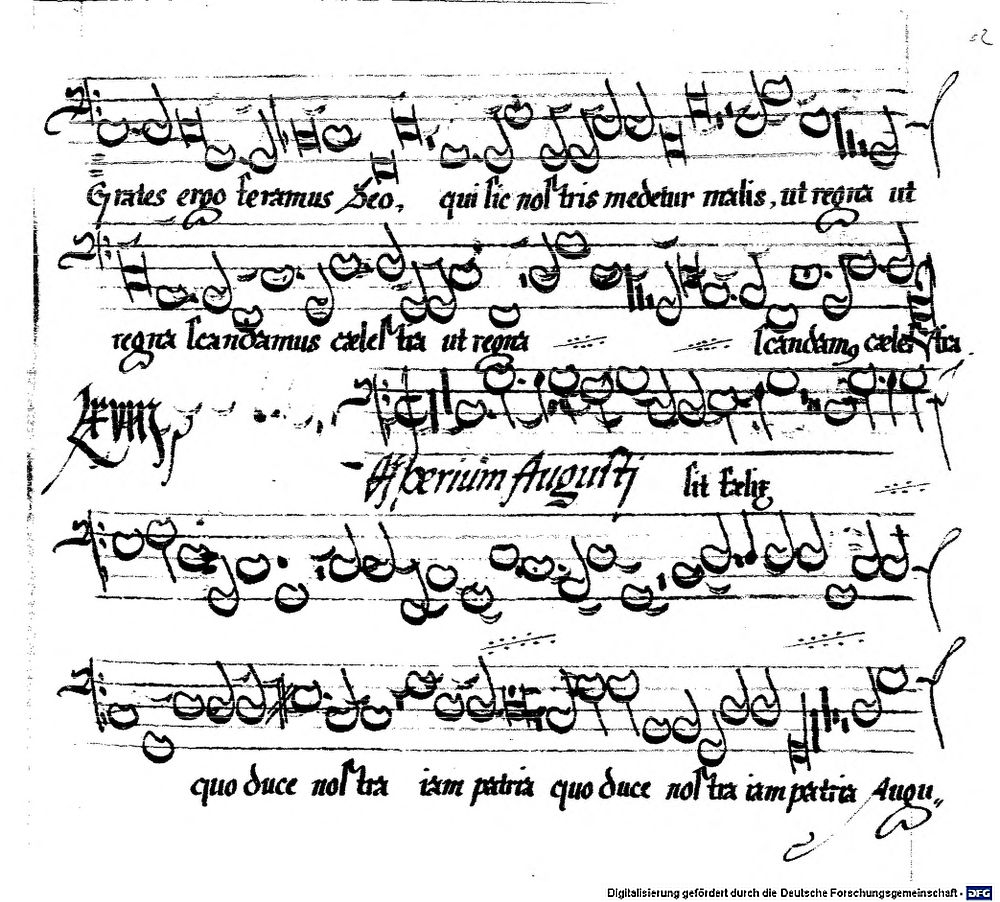 Grates ergo feramus Deo, qui sic nostris medetur malis, ut regna ut
regna scandamus cælestia ut regna scandam9 cælestia.
LXVIII
Imperium Augusti sit fælix
quo duce nostra iam patria quo duce nostra iam patria Augu„
Digitalisierung gefördert durch die Deutsche Forschungsgemeinschaft - DFG